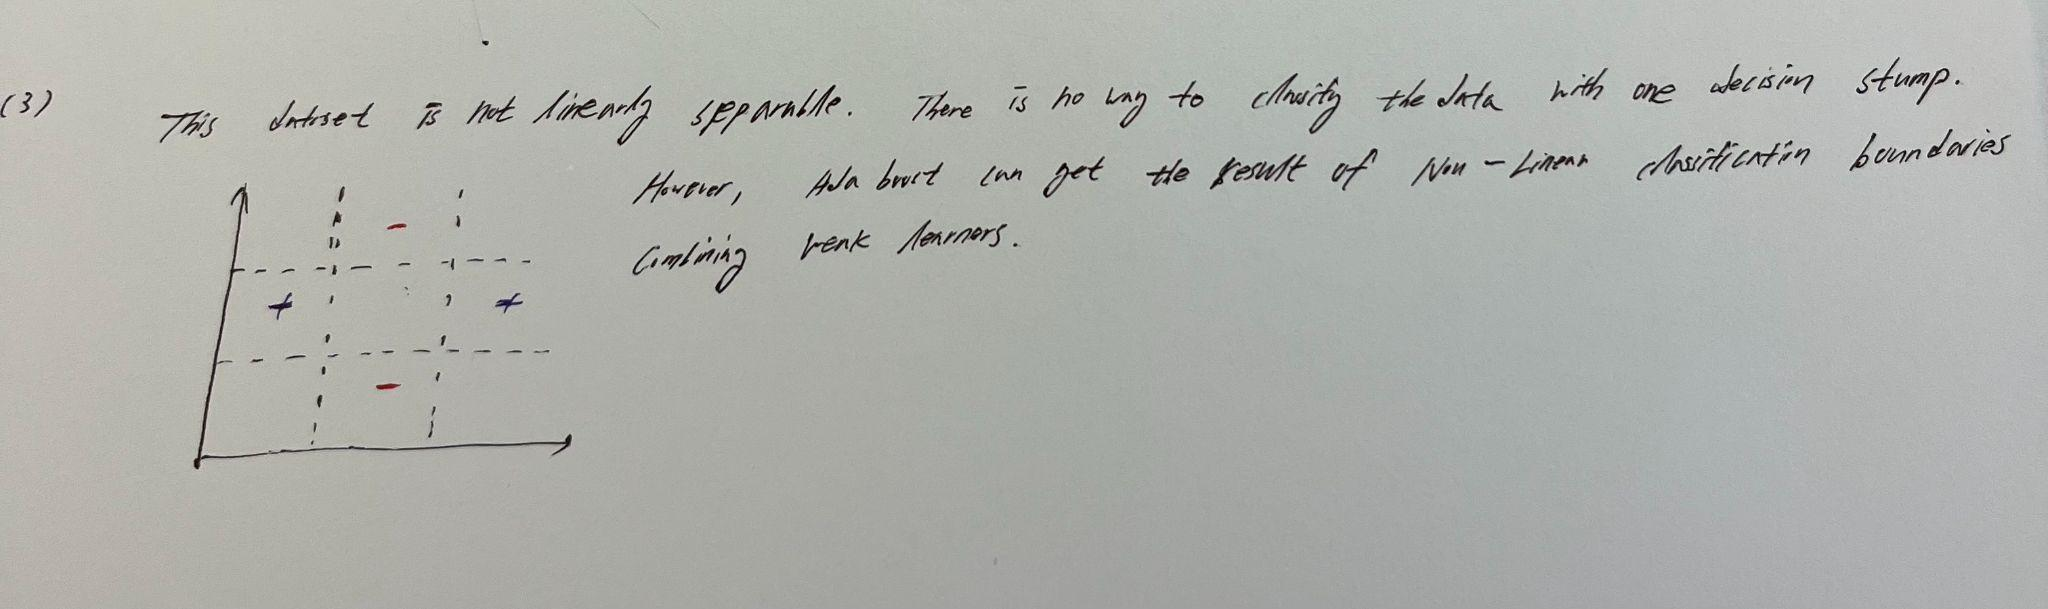 (3) This dataset is not linearly separable. There is no way to classify the data with one decision stump.
However, Ada boost can get the result of Non-Linear classification boundaries
Combining weak learners.
-
+ +
-